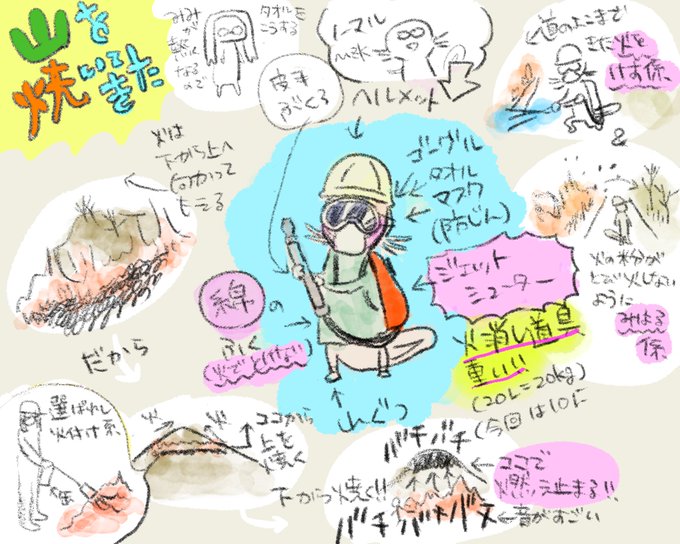 山を
焼いて
きた
みみ
が
熱く
なるので
タオルを
こうする
ノーマル
皮手
ぶくろ
ヘルメット
道のよこまで
きた火を
けす係
&
火は
下から上へ
向かって
もえる
ゴーグル
タオル
マスク
(防じん)
ジェット
シューター
火の粉が
とび火しない
ように
みはる
係
綿の
ふく
火でとけない
火消し道具
重いい
(20L=20kg)
(今回は10に
山ぐつ
だから
選ばれし
火付け係
火
火
ココから
上を
焼く
下から焼く!!
バチバチ
ココで
燃え止まる!!
音がすごい